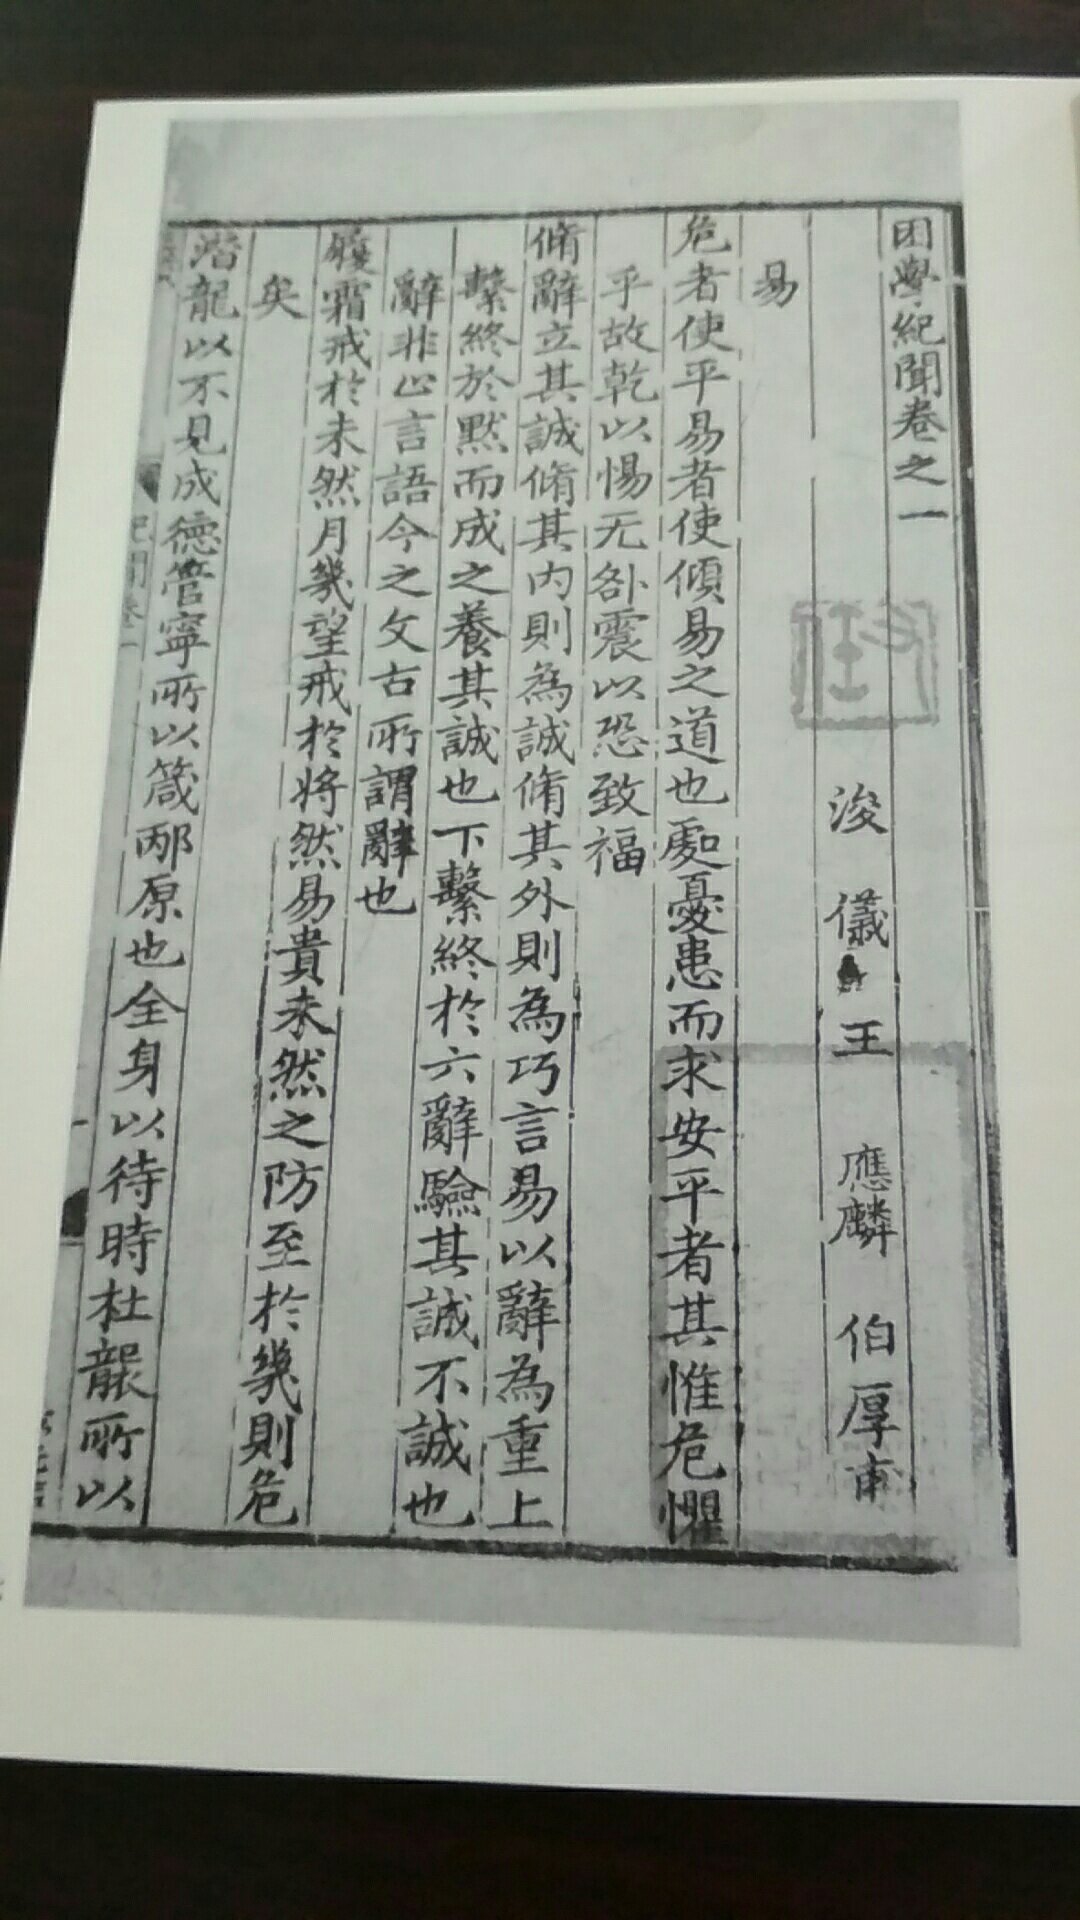 困學紀聞卷之一
浚儀王應麟伯厚甫
易
危者使平易者使傾易之道也處憂患而求安平者其惟危懼
乎故乾以惕无咎震以恐致福
脩辭立其誠脩其內則為誠脩其外則為巧言易以辭為重上
繫終於黙而成之養其誠也下繫終於六辭驗其誠不誠也
辭非止言語今之文古所謂辭也
履霜戒於未然月幾望戒於將然易貴未然之防至於幾則危
矣
潛龍以不見成德管寧所以箴邴原也全身以待時杜襲所以
紀聞卷一